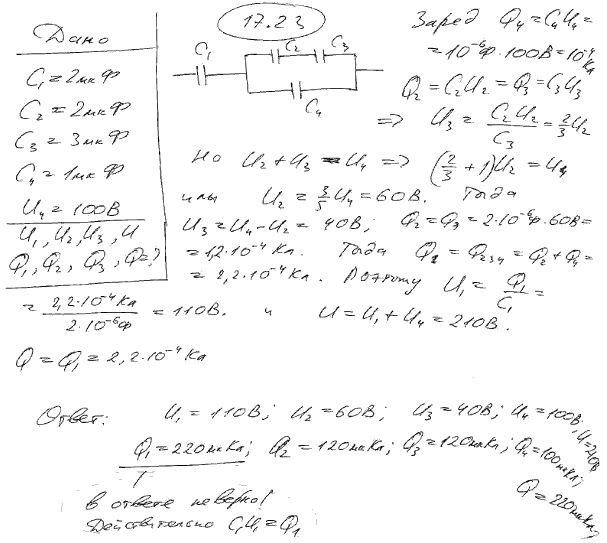 17.23
Дано
C₁ = 2мкФ
C₂ = 2мкФ
C₃ = 3мкФ
C₄ = 1мкФ
U₄ = 100В
U₁, U₂, U₃, U
Q₁, Q₂, Q₃, Q = ?
C₁ C₂ C₃
C₄
Заряд Q₄ = C₄U₄ =
= 10⁻⁶Ф · 100В = 10⁻⁴ Кл
Q₂ = C₂U₂ = Q₃ = C₃U₃
=> U₃ = C₂U₂/C₃ = 2/3 U₂
Но U₂ + U₃ = U₄ => (2/3 + 1)U₂ = U₄
или U₂ = 3/5 U₄ = 60В. Тогда
U₃ = U₄ - U₂ = 40В; Q₂ = Q₃ = 2·10⁻⁶Ф·60В =
= 1,2·10⁻⁴ Кл. Тогда Q₁ = Q₂₃₄ = Q₂ + Q₄ =
= 2,2·10⁻⁴Кл. Поэтому U₁ = Q₁/C₁ =
= 2,2·10⁻⁴Кл / 2·10⁻⁶Ф = 110В. и U = U₁ + U₄ = 210В.
Q = Q₁ = 2,2·10⁻⁴Кл
Ответ: U₁ = 110В; U₂ = 60В; U₃ = 40В; U₄ = 100В; U = 210В
Q₁ = 220мкКл; Q₂ = 120мкКл; Q₃ = 120мкКл; Q₄ = 100мкКл;
Q = 220мкКл
в ответе неверно!
Действительно C₁U₁ = Q₁